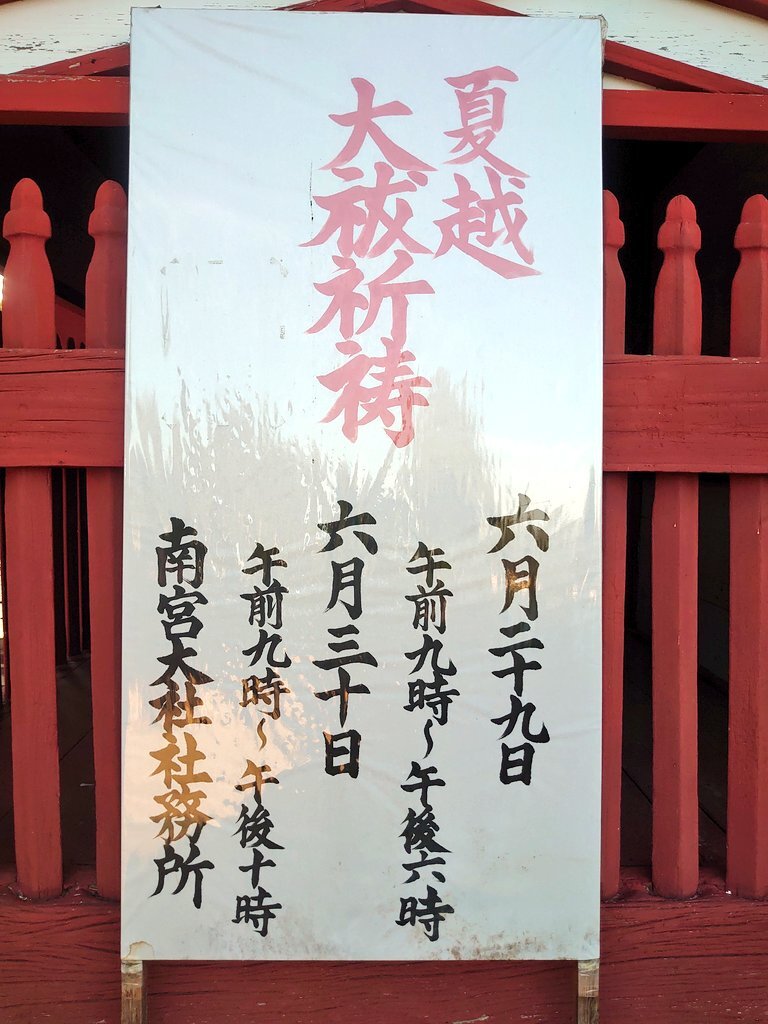 夏越
大祓祈祷
六月二十九日
午前九時～午後六時
六月三十日
午前九時～午後十時
南宮大社社務所